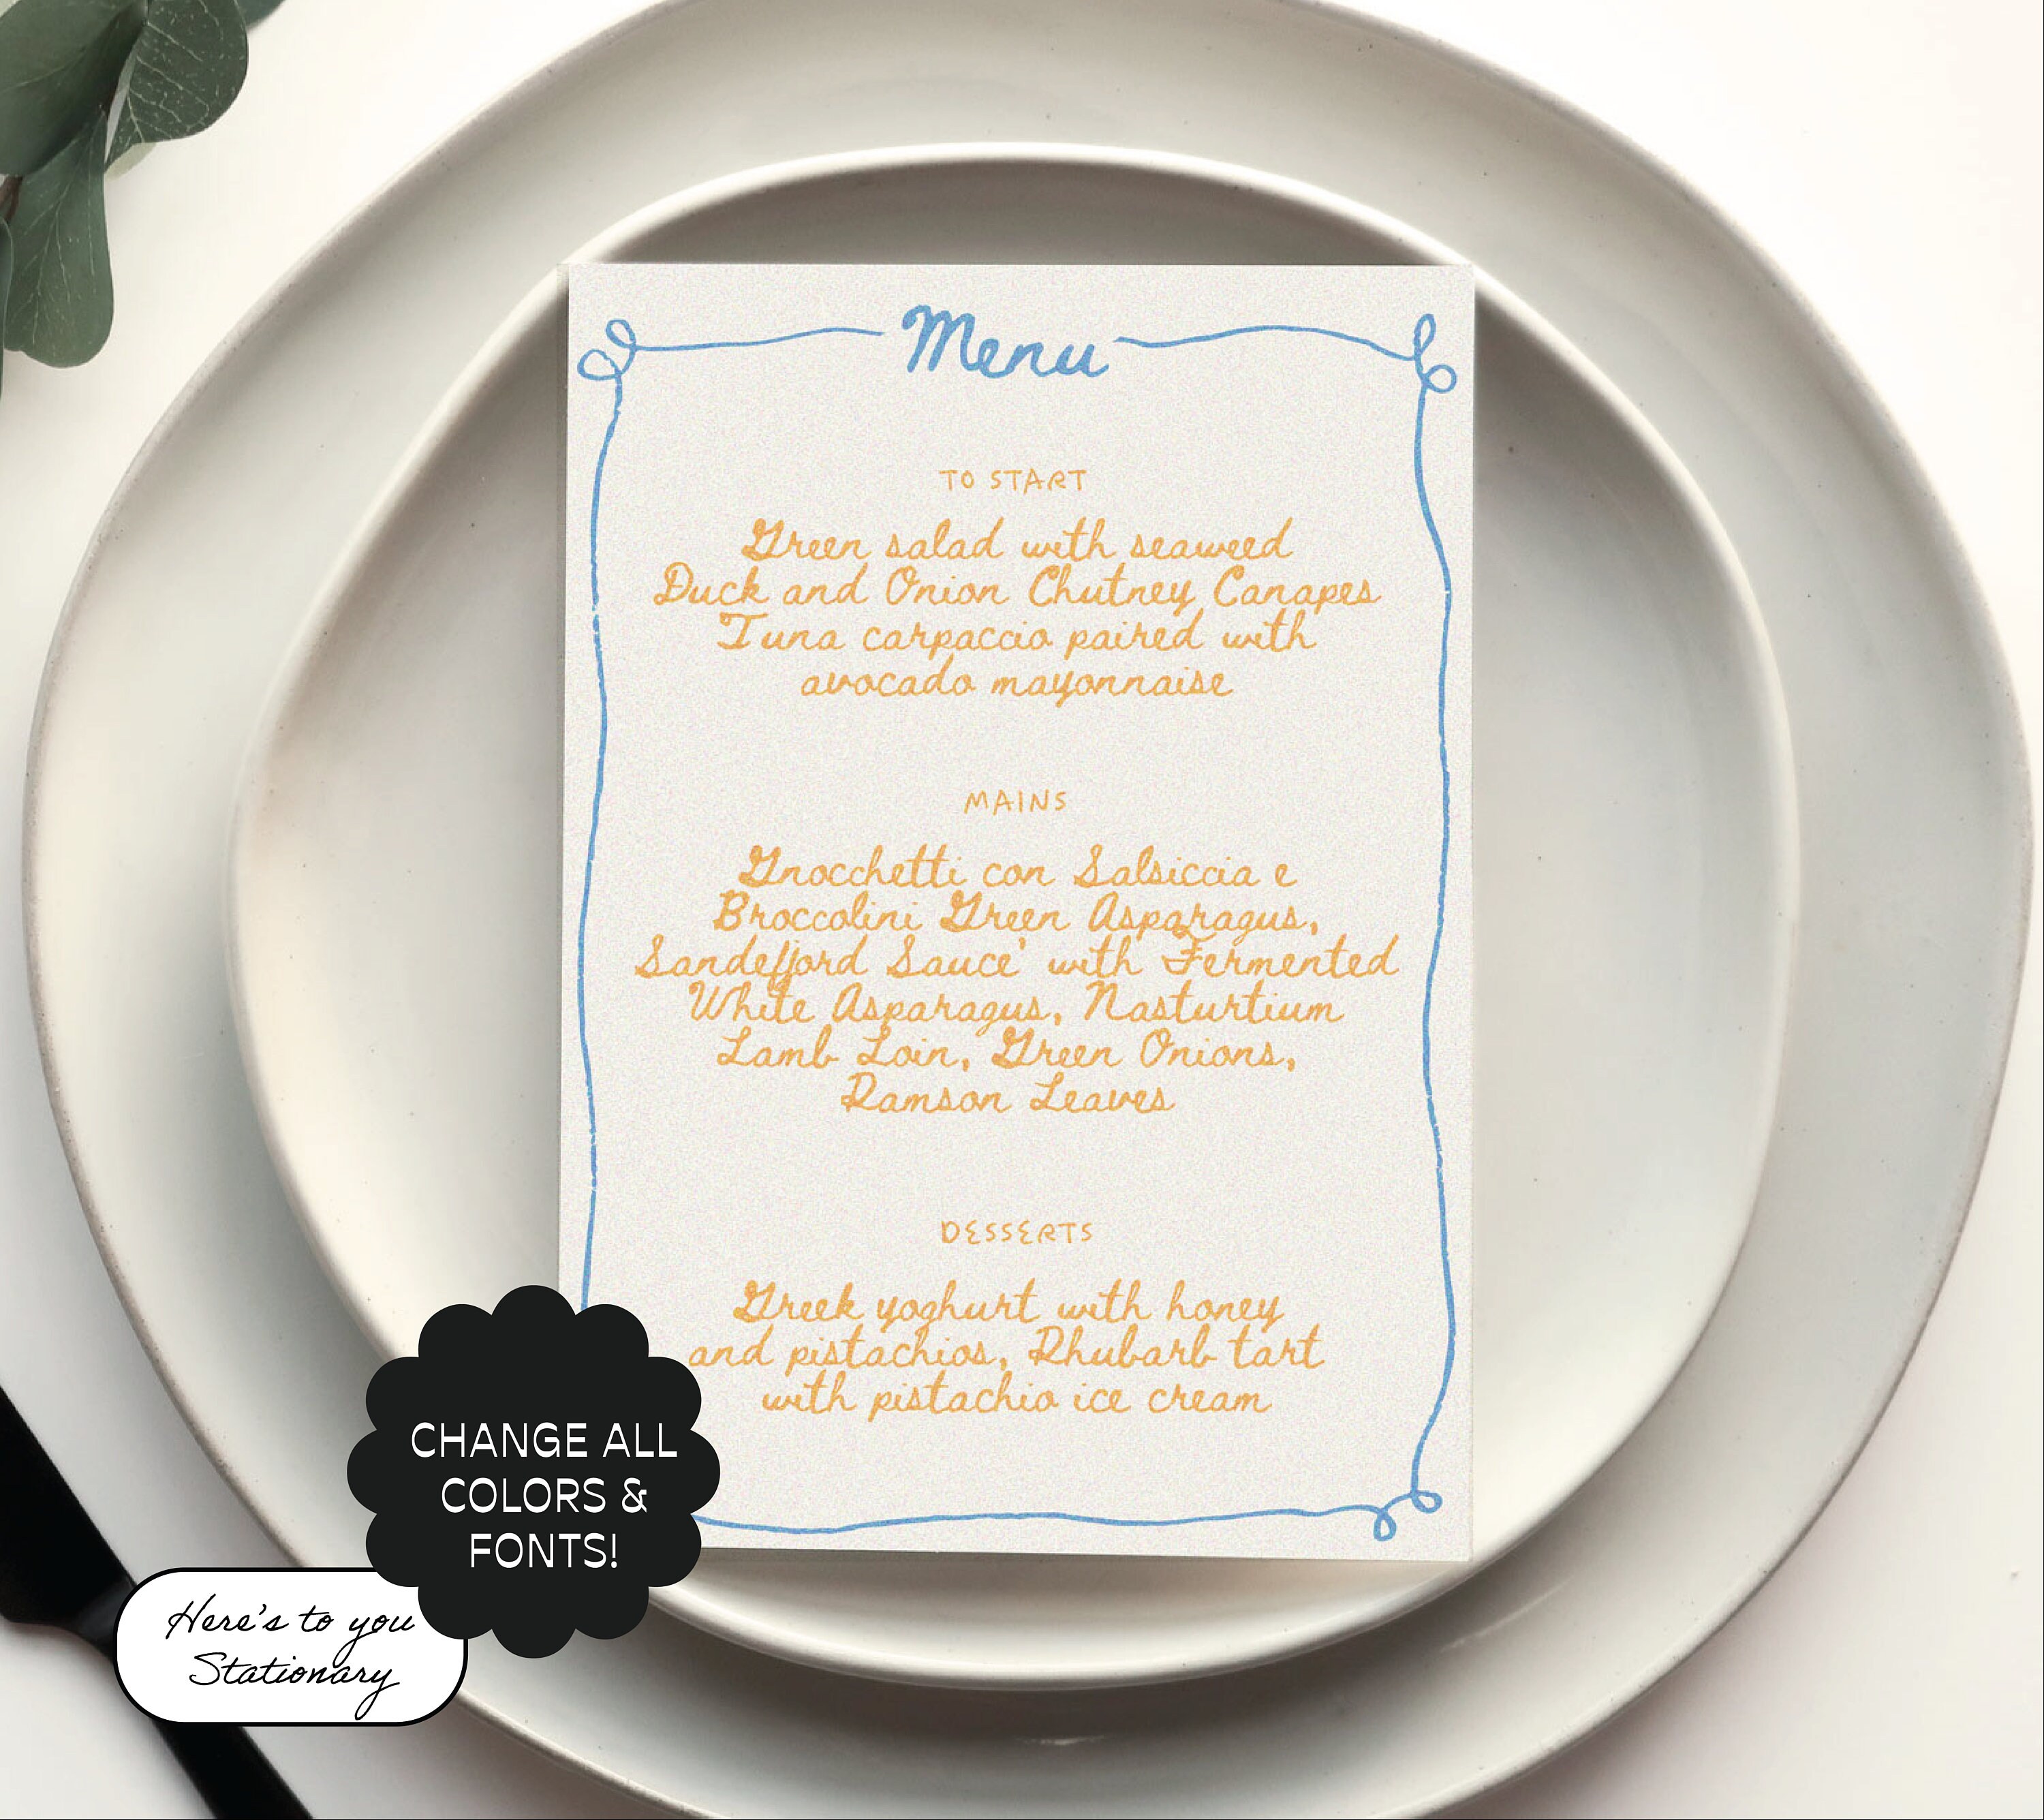 Menu
TO START
Green salad with seaweed
Duck and Onion Chutney Canapes
Tuna carpaccio paired with
avocado mayonnaise
MAINS
Gnocchetti con Salsiccia e
Broccolini Green Asparagus,
Sandefjord Sauce' with Fermented
White Asparagus, Nasturtium
Lamb Loin, Green Onions,
Ramson Leaves
DESSERTS
Greek yoghurt with honey
and pistachios, Rhubarb tart
with pistachio ice cream
CHANGE ALL
COLORS &
FONTS!
Here's to you
Stationary